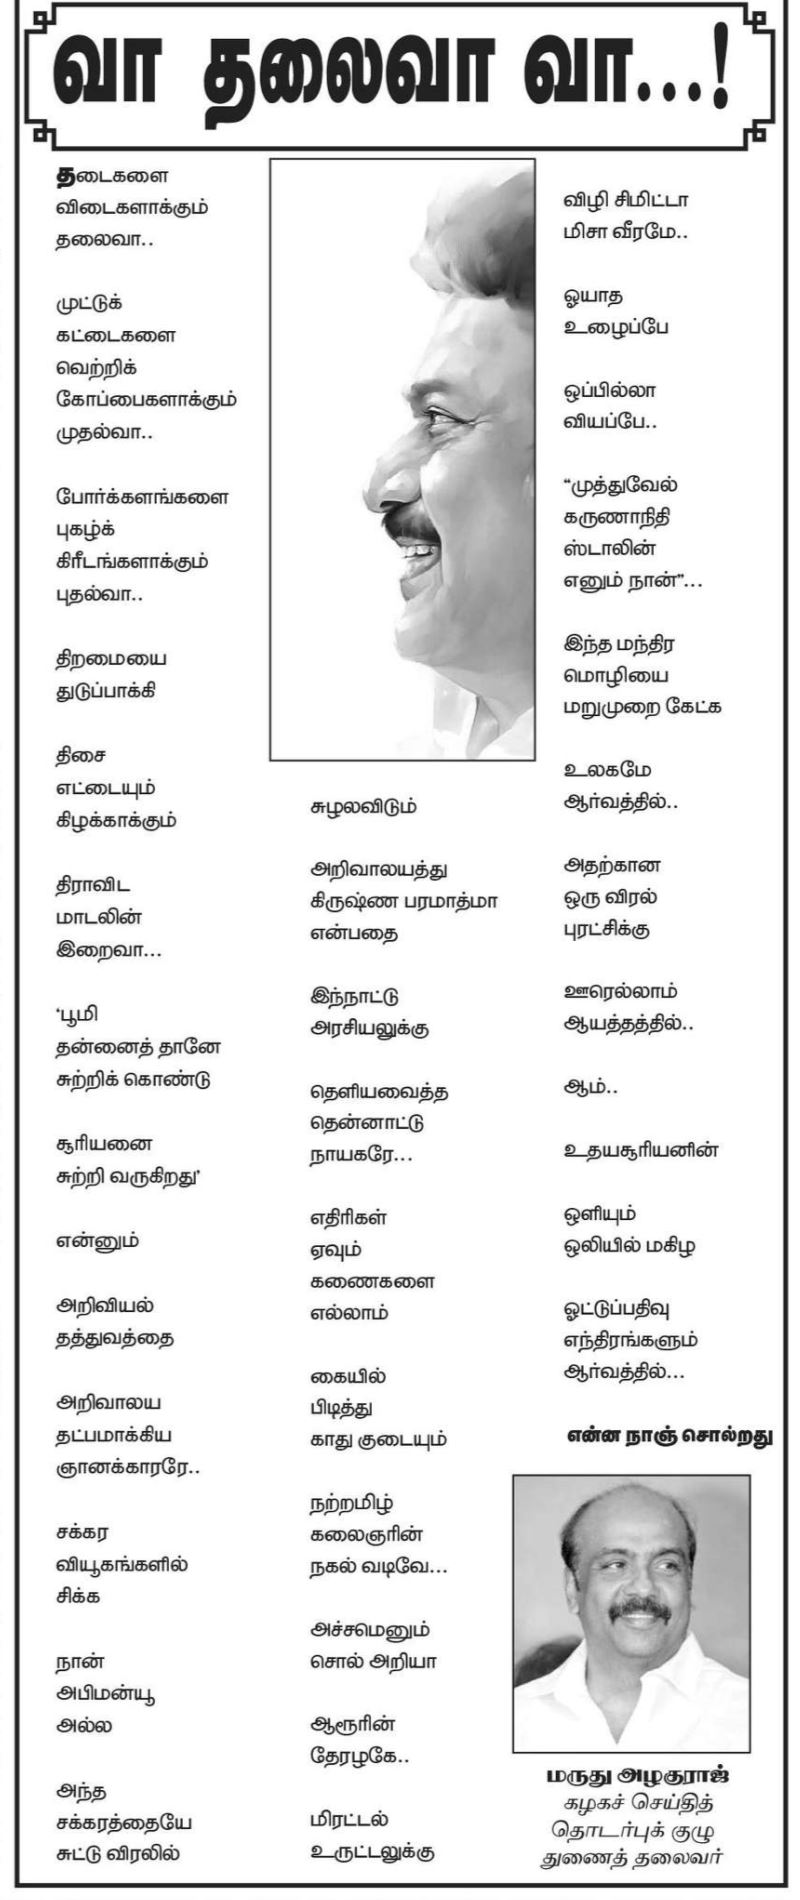 வா தலைவா வா...!
தடைகளை
விடைகளாக்கும்
தலைவா..
முட்டுக்
கட்டைகளை
வெற்றிக்
கோப்பைகளாக்கும்
முதல்வா..
போர்க்களங்களை
புகழ்க்
கிரீடங்களாக்கும்
புதல்வா..
திறமையை
துடுப்பாக்கி
திசை
எட்டையும்
கிழக்காக்கும்
திராவிட
மாடலின்
இறைவா...
‘பூமி
தன்னைத் தானே
சுற்றிக் கொண்டு
சூரியனை
சுற்றி வருகிறது’
என்னும்
அறிவியல்
தத்துவத்தை
அறிவாலய
தட்பமாக்கிய
ஞானக்காரரே..
சக்கர
வியூகங்களில்
சிக்க
நான்
அபிமன்யூ
அல்ல
அந்த
சக்கரத்தையே
சுட்டு விரலில்
சுழலவிடும்
அறிவாலயத்து
கிருஷ்ண பரமாத்மா
என்பதை
இந்நாட்டு
அரசியலுக்கு
தெளியவைத்த
தென்னாட்டு
நாயகரே...
எதிரிகள்
ஏவும்
கணைகளை
எல்லாம்
கையில்
பிடித்து
காது குடையும்
நற்றமிழ்
கலைஞரின்
நகல் வடிவே...
அச்சமெனும்
சொல் அறியா
ஆரூரின்
தேரழகே..
மிரட்டல்
உருட்டலுக்கு
விழி சிமிட்டா
மிசா வீரமே..
ஓயாத
உழைப்பே
ஒப்பில்லா
வியப்பே..
“முத்துவேல்
கருணாநிதி
ஸ்டாலின்
எனும் நான்”...
இந்த மந்திர
மொழியை
மறுமுறை கேட்க
உலகமே
ஆர்வத்தில்..
அதற்கான
ஒரு விரல்
புரட்சிக்கு
ஊரெல்லாம்
ஆயத்தத்தில்..
ஆம்..
உதயசூரியனின்
ஒளியும்
ஒலியில் மகிழ
ஓட்டுப்பதிவு
எந்திரங்களும்
ஆர்வத்தில்...
என்ன நாஞ் சொல்றது
மருது அழகுராஜ்
கழகச் செய்தித்
தொடர்புக் குழு
துணைத் தலைவர்